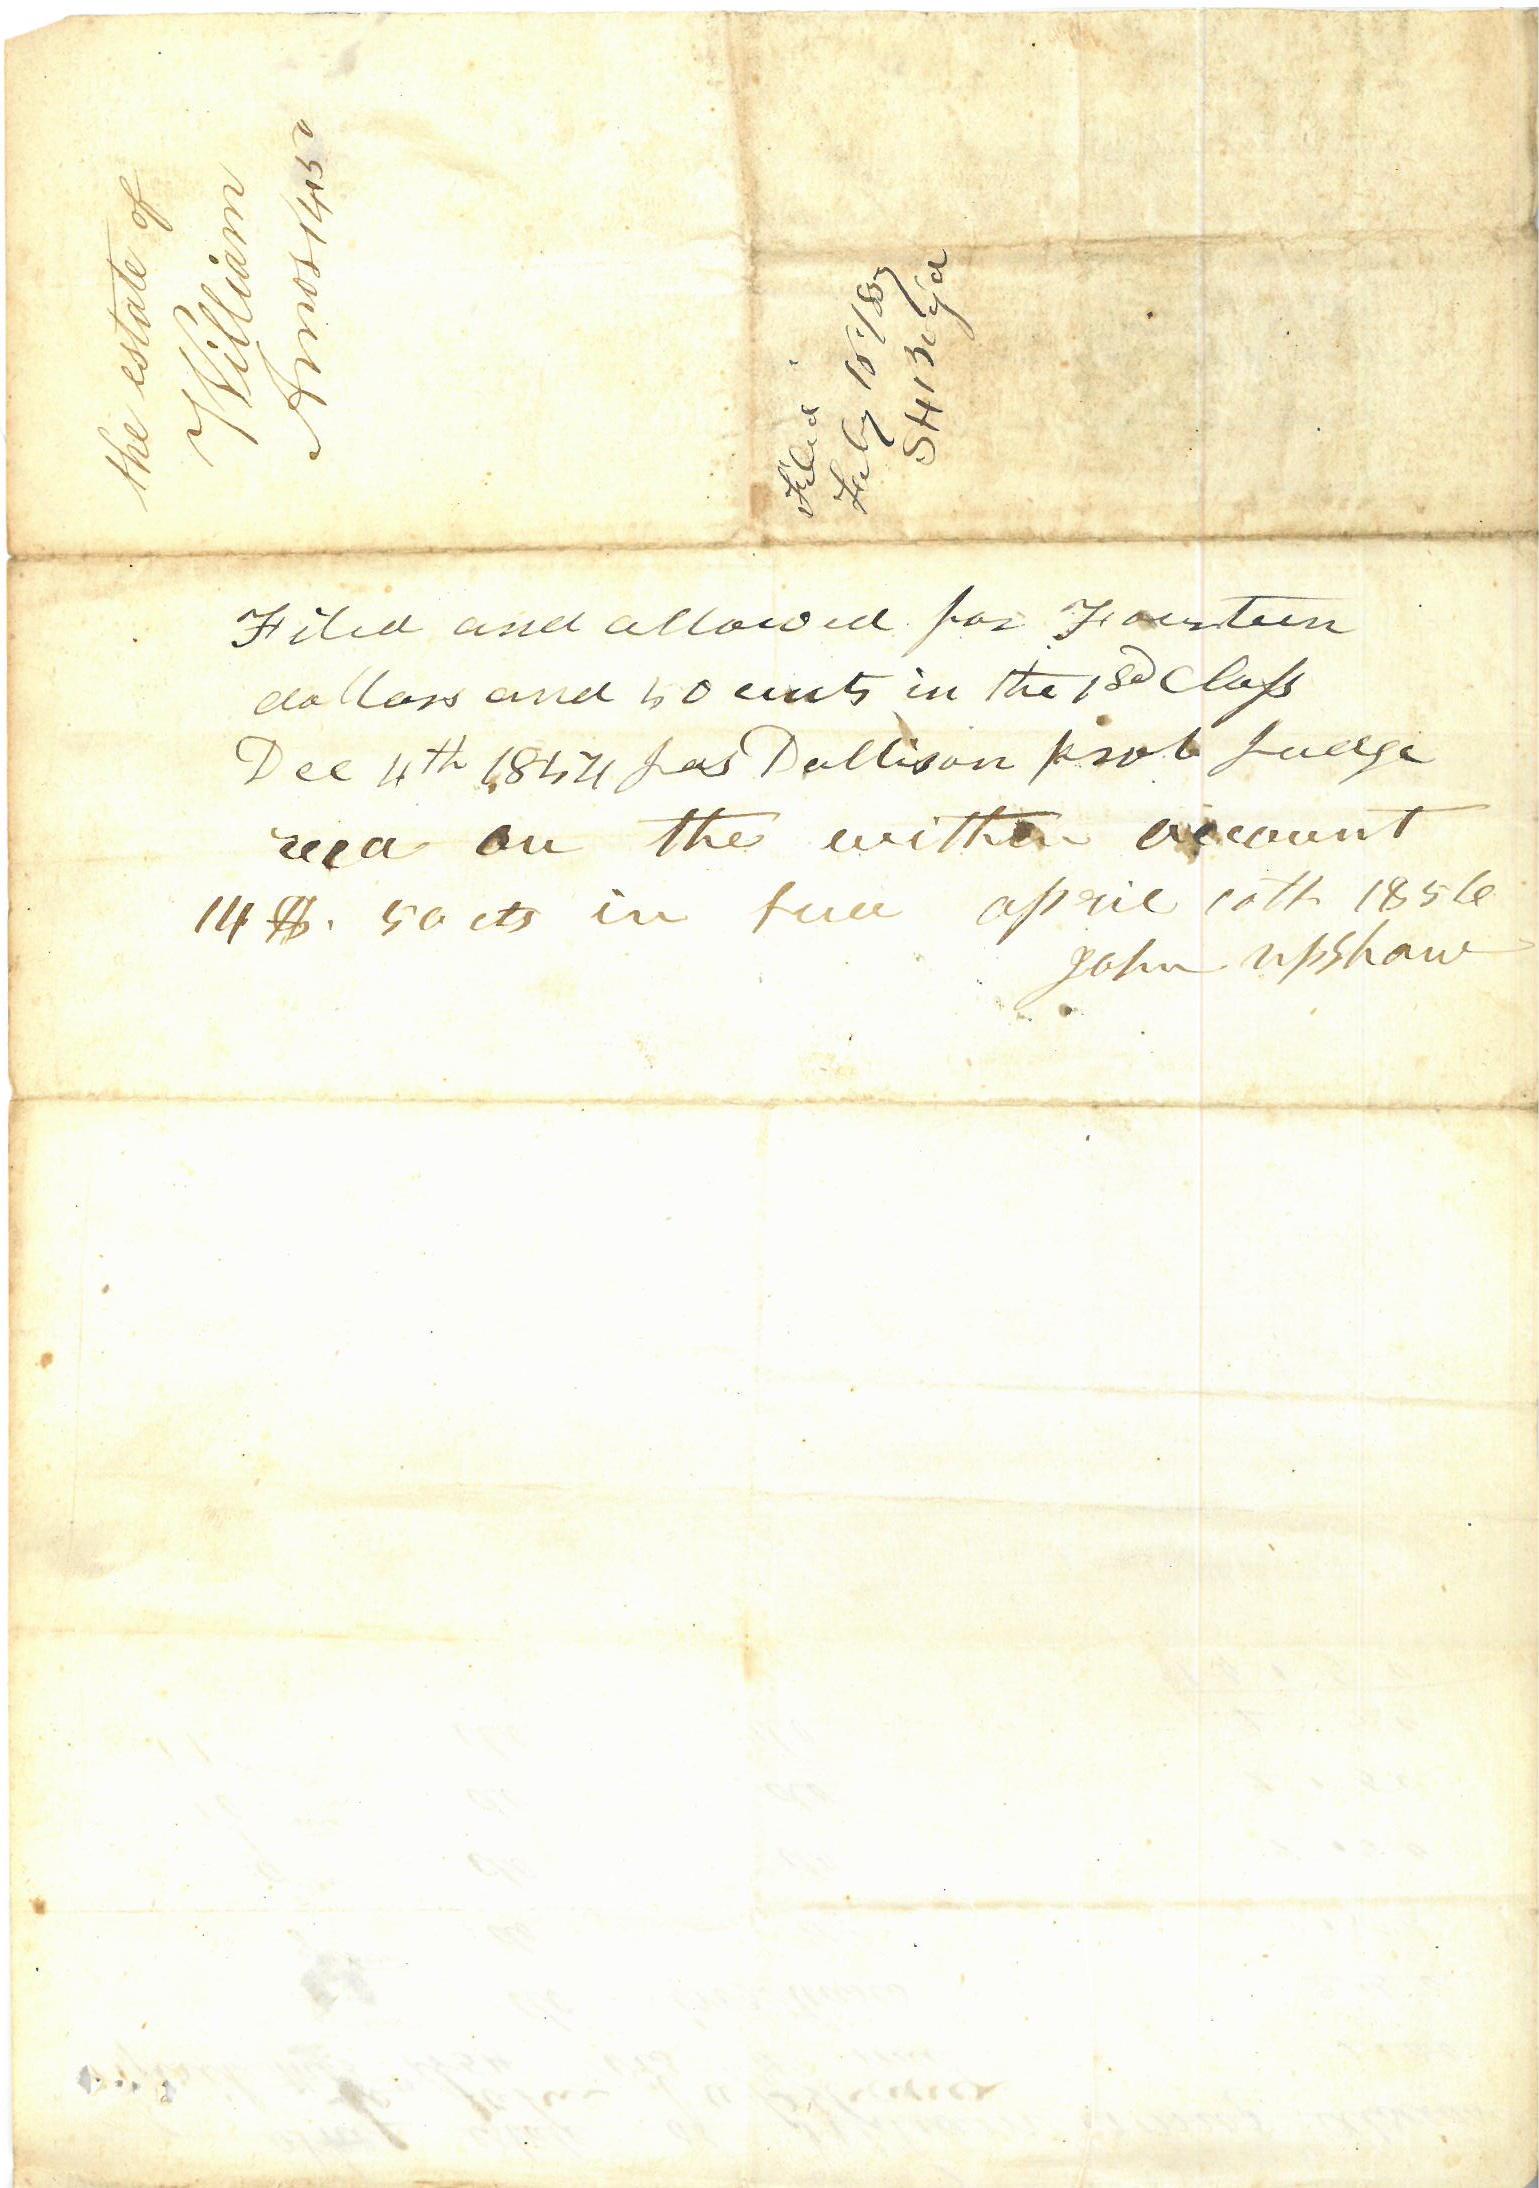 the estate of
William
Amos 1450
Filed
Feby 15
Filed and allowed for Fourteen
dollars and 50 cents in the Class
Dec 4th 1854 Jas Dallison prob Judge
recd on the within account
14 $. 50 cts in full april 10th 1856
John Upshaw